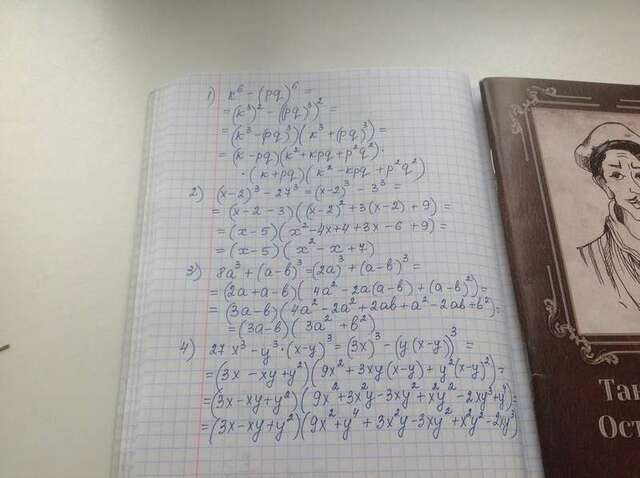 1) k⁶ - (pq)⁶ =
= (k³)² - (pq)³)² =
= (k³ - pq)³)(k³ + (pq)³) =
= (k - pq)(k² + kpq + p²q²) ·
· (k + pq)(k² - kpq + p²q²)
2) (x-2)³ - 27³ = (x-2)³ - 3³ =
= (x - 2 - 3)((x-2)² + 3(x-2) + 9) =
= (x-5)(x² - 4x + 4 + 3x - 6 + 9) =
= (x-5)(x² - x + 7)
3) 8a³ + (a-b)³ = (2a)³ + (a-b)³ =
= (2a + a - b)(4a² - 2a(a-b) + (a-b)²) =
= (3a - b)(4a² - 2a² + 2ab + a² - 2ab + b²) =
= (3a - b)(3a² + b²)
4) 27x³ - y³ · (x-y)³ = (3x)³ - (y(x-y))³ =
= (3x - xy + y²)(9x² + 3xy(x-y) + y²(x-y)²) =
= (3x - xy + y²)(9x² + 3x²y - 3xy² + x²y² - 2xy³ + y⁴)
= (3x - xy + y²)(9x² + y⁴ + 3x²y - 3xy² + x²y² - 2xy³)
Тан
Ост